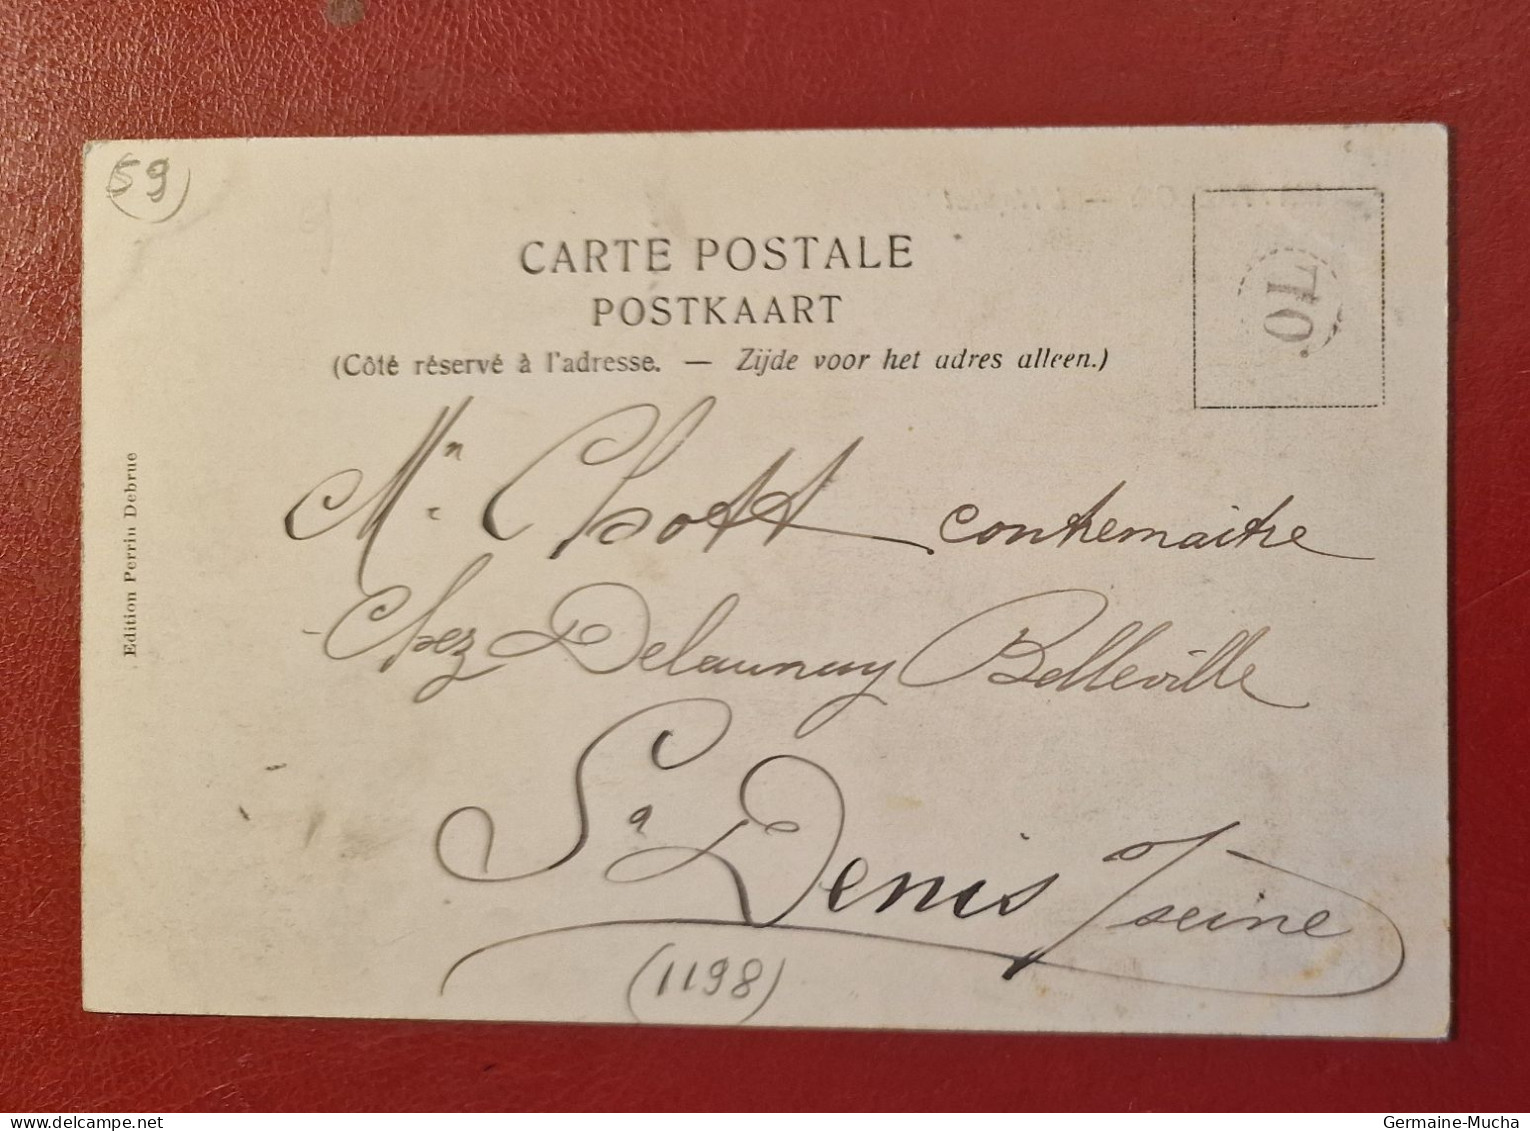 59
CARTE POSTALE
POSTKAART
(Côté réservé à l'adresse. — Zijde voor het adres alleen.)
70
Edition Perrin Debrue
Mr. Chott contremaitre
Chez Delaunay Belleville
St Denis / seine
(1198)
delcampe.net
Germaine-Mucha